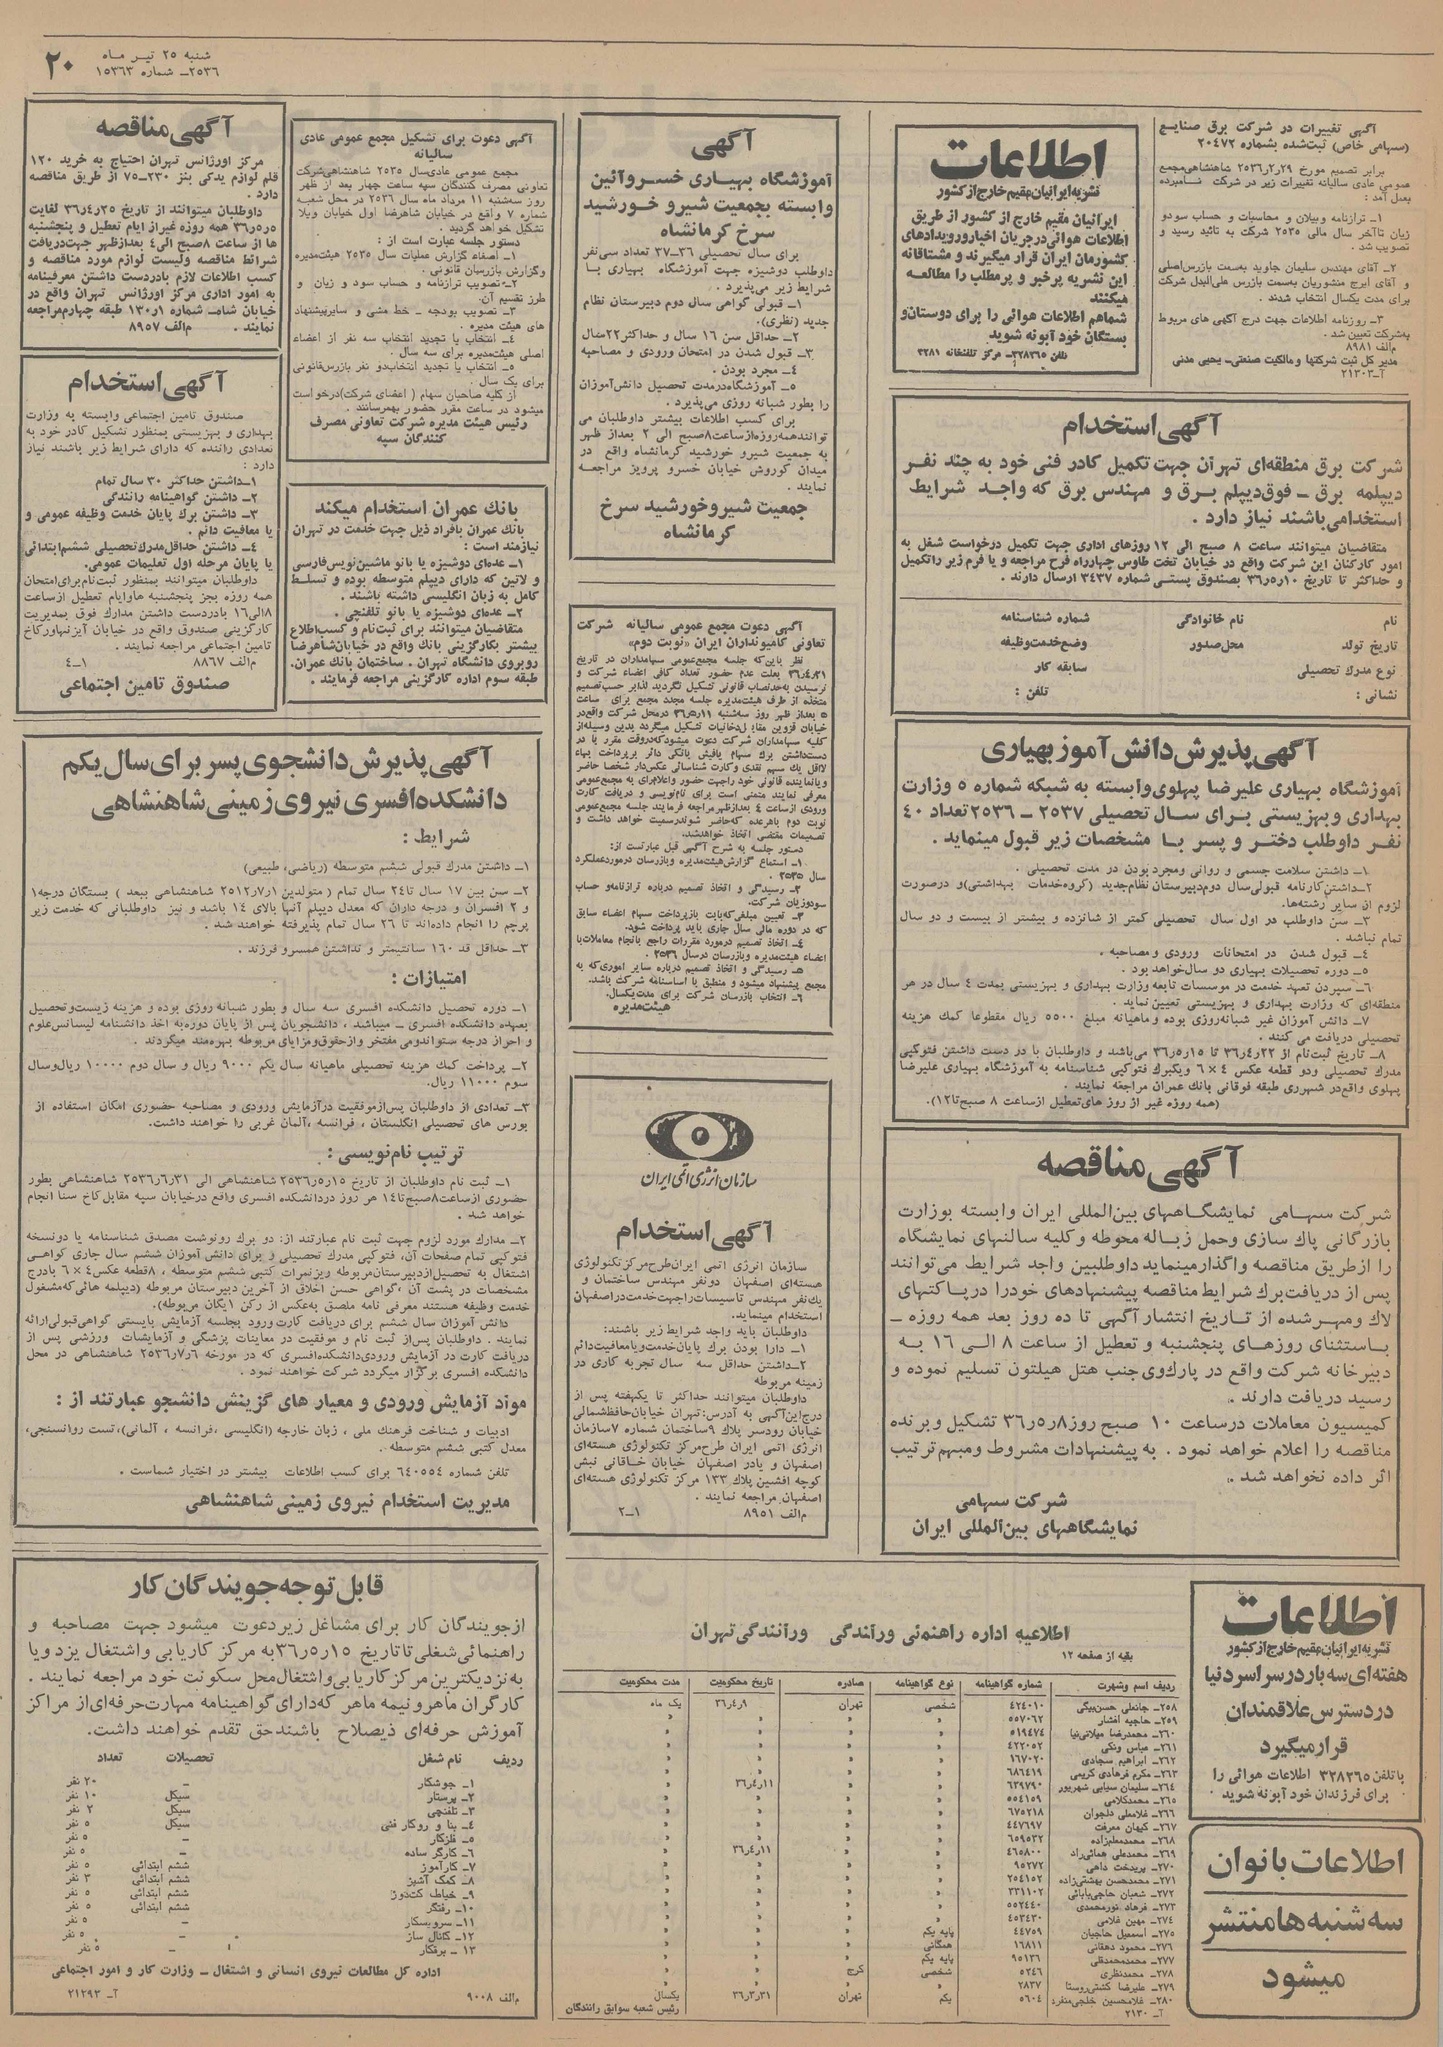 شنبه ۲۵ تیر ماه
۲۵۳۶ـ شماره ۱۵۳۶۳
۲۰
آگهی تغییرات در شرکت برق صنایع
(سهامی خاص) ثبت‌شده بشماره ۲۰۴۷۲
برابر تصمیم مورخ ۲۵۳۶ر۲ر۲۹ شاهنشاهی‌مجمع
عمومی عادی سالیانه تغییرات زیر در شرکت نامبرده
بعمل آمد :
۱ـ ترازنامه وبیلان و محاسبات و حساب سودو
زیان تاآخر سال مالی ۲۵۳۵ شرکت به تائید رسید و
تصویب شد .
۲ـ آقای مهندس سلیمان جاوید به‌سمت بازرس‌اصلی
و آقای ایرج منشوریان به‌سمت بازرس علی‌البدل شرکت
برای مدت یکسال انتخاب شدند .
۳ـ روزنامه اطلاعات جهت درج آگهی های مربوط
به‌شرکت تعیین شد .
م‌الف ۸۹۸۱
مدیر کل ثبت شرکتها و مالکیت صنعتی‌ـ یحیی مدنی
آـ ۲۱۳۰۳
اطلاعات
نشریه ایرانیان مقیم خارج از کشور
ایرانیان مقیم خارج از کشور از طریق
اطلاعات هوائی درجریان اخبار و رویدادهای
کشورمان ایران قرار میگیرند و مشتاقانه
این نشریه پرخبر و پرمطلب را مطالعه
میکنند
شماهم اطلاعات هوائی را برای دوستان‌و
بستگان خود آبونه شوید
تلفن ۳۲۸۲۶۵ـ مرکز تلفنخانه ۳۲۸۱
آگهی استخدام
شرکت برق منطقه‌ای تهران جهت تکمیل کادر فنی خود به چند نفر
دیپلمه برق ـ فوق‌دیپلم برق و مهندس برق که واجد شرایط
استخدامی‌باشند نیاز دارد .
متقاضیان میتوانند ساعت ۸ صبح الی ۱۲ روزهای اداری جهت تکمیل درخواست شغل به
امور کارکنان این شرکت واقع در خیابان تخت طاوس چهارراه فرح مراجعه و یا فرم زیر راتکمیل
و حداکثر تا تاریخ ۳۶ر۵ر۱۰ بصندوق پستی شماره ۳۴۳۷ ارسال دارند .
نام نام خانوادگی شماره شناسنامه
تاریخ تولد محل‌صدور وضع‌خدمت‌وظیفه
نوع مدرك تحصیلی سابقه کار
نشانی : تلفن :
آگهی پذیرش دانش آموز بهیاری
آموزشگاه بهیاری علیرضا پهلوی‌وابسته به شبکه شماره ۵ وزارت
بهداری وبهزیستی برای سال تحصیلی ۲۵۳۷ ـ ۲۵۳۶ تعداد ۴۰
نفر داوطلب دختر و پسر با مشخصات زیر قبول مینماید .
۱ـ داشتن سلامت جسمی و روانی ومجرد بودن در مدت تحصیلی .
۲ـداشتن‌کارنامه قبولی‌سال دوم‌دبیرستان نظام‌جدید (گروه‌خدمات بهداشتی)و درصورت
لزوم از سایر رشته‌ها.
۳ـ سن داوطلب در اول سال تحصیلی کمتر از شانزده و بیشتر از بیست و دو سال
تمام نباشد .
۴ـ قبول شدن در امتحانات ورودی ومصاحبه .
۵ـ دوره تحصیلات بهیاری دو سال‌خواهد بود .
۶ـ سپردن تعهد خدمت در موسسات تابعه وزارت بهداری و بهزیستی بمدت ۴ سال در هر
منطقه‌ای که وزارت بهداری و بهزیستی تعیین نماید .
۷ـ دانش آموزان غیر شبانه‌روزی بوده وماهیانه مبلغ ۵۵۰۰ ریال مقطوعا کمك هزینه
تحصیلی دریافت می کنند .
۸ـ تاریخ ثبت‌نام از ۳۶ر۴ر۲۲ تا ۳۶ر۵ر۱۵ می‌باشد و داوطلبان با در دست داشتن فتوکپی
مدرك تحصیلی ودو قطعه عکس ۴ × ۶ ویکبرك فتوکپی شناسنامه به آموزشگاه بهیاری علیرضا
پهلوی واقع‌در شهرری طبقه فوقانی بانك عمران مراجعه نمایند .
(همه روزه غیر از روز های‌تعطیل ازساعت ۸ صبح‌تا۱۲).
آگهی مناقصه
شرکت سهامی نمایشگاههای بین‌المللی ایران وابسته بوزارت
بازرگانی پاك سازی وحمل زباله محوطه وکلیه سالنهای نمایشگاه
را ازطریق مناقصه واگذارمینماید داوطلبین واجد شرایط می‌توانند
پس از دریافت‌برك شرایط‌مناقصه پیشنهادهای خودرا درپاکتهای
لاك ومهرشده از تاریخ انتشار آگهی تا ده روز بعد همه روزه ـ
باستثنای روزهای پنجشنبه و تعطیل از ساعت ۸ الی ۱۶ به
دبیرخانه شرکت واقع در پارك‌وی جنب هتل هیلتون تسلیم نموده و
رسید دریافت دارند .
کمیسیون معاملات درساعت ۱۰ صبح روز۳۶ر۵ر۸ تشکیل وبرنده
مناقصه را اعلام خواهد نمود . به پیشنهادات مشروط ومبهم‌ترتیب
اثر داده نخواهد شد .
شرکت سهامی
نمایشگاههای بین‌المللی ایران
اطلاعات
نشریه ایرانیان مقیم خارج از کشور
هفته‌ای سه بار در سراسر دنیا
در دسترس علاقمندان
قرار میگیرد
با تلفن ۳۲۸۲۶۵ اطلاعات هوائی را
برای فرزندان خود آبونه شوید
اطلاعات بانوان
سه‌شنبه‌ها منتشر
میشود
آگهی
آموزشگاه بهیاری خسروآئین
وابسته بجمعیت شیرو خورشید
سرخ کرمانشاه
برای سال تحصیلی ۳۶ـ۳۷ تعداد سی‌نفر
داوطلب دوشیزه جهت آموزشگاه بهیاری با
شرایط زیر می‌پذیرد .
۱ـ قبولی گواهی سال دوم دبیرستان نظام
جدید (نظری).
۲ـ حداقل سن ۱۶ سال و حداکثر ۲۲سال
۳ـ قبول شدن در امتحان ورودی و مصاحبه
۴ـ مجرد بودن .
۵ـ آموزشگاه‌درمدت تحصیل دانش‌آموزان
را بطور شبانه روزی می‌پذیرد .
برای کسب اطلاعات بیشتر داوطلبان می
توانندهمه‌روزه‌ازساعت۸صبح الی ۲ بعداز ظهر
به جمعیت شیرو خورشید کرمانشاه واقع در
میدان کوروش خیابان خسرو پرویز مراجعه
نمایند .
جمعیت شیروخورشید سرخ
کرمانشاه
آگهی دعوت مجمع عمومی سالیانه شرکت
تعاونی کامیونداران ایران «نوبت دوم»
نظر باین‌که جلسه مجمع‌عمومی سهامداران در تاریخ
۳۶ر۴ر۲۱ بعلت عدم حضور تعداد کافی اعضاء شرکت و
نرسیدن به‌حدنصاب قانونی تشکیل نگردید لذابر حسب‌تصمیم
متخذه از طرف هیئت‌مدیره جلسه مجدد مجمع برای ساعت
۵ بعداز ظهر روز سه‌شنبه ۳۶ر۵ر۱۱ درمحل شرکت واقع‌در
خیابان قزوین مقابل‌دخانیات تشکیل میگردد بدین وسیله‌از
کلیه سهامداران شرکت دعوت میشودکه‌دروقت مقرر با در
دست‌داشتن برك سهام یافیش بانکی دائر برپرداخت بهاء
لااقل یك سهم نقدی وکارت شناسائی عکس‌دار شخصا حاضر
ویانماینده قانونی خود راجهت حضور واعلام‌رای به مجمع‌عمومی
معرفی نمایند متمنی است برای نام‌نویسی و دریافت کارت
ورودی ازساعت ۴ بعدازظهرمراجعه فرمایند جلسه مجمع‌عمومی
نوبت دوم باهرعده که‌حاضر شوندرسمیت خواهد داشت و
تصمیمات مقتضی اتخاذ خواهدشد.
دستور جلسه به شرح آگهی قبل عبارتست از:
۱ـ استماع گزارش‌هیئت‌مدیره وبازرسان درموردعملکرد
سال ۲۵۳۵
۲ـ رسیدگی و اتخاذ تصمیم درباره ترازنامه‌و حساب
سودوزیان شرکت.
۳ـ تعیین مبلغی‌که‌بابت بازپرداخت سهام اعضاء سابق
که در دوره مالی سال جاری باید پرداخت شود.
۴ـ اتخاذ تصمیم درمورد مقررات راجع بانجام معاملات‌با
اعضاء هیئت‌مدیره وبازرسان درسال ۲۵۳۶
۵ـ رسیدگی و اتخاذ تصمیم درباره سایر اموری‌که به
مجمع پیشنهاد میشود و منطبق با اساسنامه شرکت باشد.
۶ـ انتخاب بازرسان شرکت برای مدت‌یکسال.
هیئت‌مدیره
سازمان انرژی اتمی ایران
آگهی استخدام
سازمان انرژی اتمی ایران‌طرح‌مرکزتکنولوژی
هسته‌ای اصفهان دونفر مهندس ساختمان و
یك‌نفر مهندس تاسیسات راجهت‌خدمت‌دراصفهان
استخدام مینماید.
داوطلبان باید واجد شرایط زیر باشند:
۱ـ دارا بودن برك پایان‌خدمت‌ویامعافیت‌دائم
۲ـداشتن حداقل سه سال تجربه کاری در
زمینه مربوطه
داوطلبان میتوانند حداکثر تا یکهفته پس از
درج‌این‌آگهی به آدرس: تهران خیابان‌حافظ‌شمالی
خیابان رودسر پلاك ۹ساختمان شماره ۷سازمان
انرژی اتمی ایران طرح‌مرکز تکنولوژی هسته‌ای
اصفهان و یادر اصفهان خیابان خاقانی نبش
کوچه افشین پلاك ۱۳۳ مرکز تکنولوژی هسته‌ای
اصفهان مراجعه نمایند .
م‌الف ۸۹۵۱ ۱ـ۲
اطلاعیه اداره راهنمائی ورانندگی ورانندگی تهران
بقیه از صفحه ۱۲
ردیف اسم وشهرت شماره گواهینامه نوع گواهینامه صادره تاریخ محکومیت مدت محکومیت
۲۵۸ـ جانعلی حسن‌بیگی ۴۲۴۰۱۰ شخصی تهران ۳۶ر۴ر۹ یک ماه
۲۵۹ـ حاجیه افشار ۵۵۷۰۶۲ » » » »
۲۶۰ـ محمدرضا میلانی‌نیا ۵۱۹۴۷۴ » » » »
۲۶۱ـ عباس ونکی ۴۲۲۰۵۲ » » » »
۲۶۲ـ ابراهیم سجادی ۱۶۷۰۲۰ » » » »
۲۶۳ـ مکرم فرهادی کریمی ۶۸۶۴۱۹ » » » »
۲۶۴ـ سلیمان سیابی شهرپور ۶۳۹۷۹۰ » » ۳۶ر۴ر۱۱ »
۲۶۵ـ محمدکلامی ۵۵۴۱۵۹ » » » »
۲۶۶ـ غلامعلی دلجوان ۶۷۵۲۱۸ » » » »
۲۶۷ـ کیهان معرفت ۴۴۷۶۹۷ » » » »
۲۶۸ـ محمدمعلم‌زاده ۶۵۹۵۳۲ » » » »
۲۶۹ـ محمدعلی همائی‌راد ۴۶۵۸۰۰ » » ۳۶ر۴ر۱۱ »
۲۷۰ـ پریدخت داهی ۹۵۲۷۲ » » » »
۲۷۱ـ محمدحسن بهشتی‌زاده ۲۵۴۱۵۲ » » » »
۲۷۲ـ شعبان حاجی‌بابائی ۳۳۱۱۰۲ » » » »
۲۷۳ـ فرهاد نورمحمدی ۵۵۲۴۴۰ » » » »
۲۷۴ـ مهین غلامی ۴۵۲۴۳۰ » » » »
۲۷۵ـ اسمعیل حاجیان ۴۴۷۵۹ پایه یکم » » »
۲۷۶ـ محمود دهقانی ۱۶۸۱۱ همگانی » » »
۲۷۷ـ محمدمحمدقلی ۹۵۱۳۶ پایه یکم » » »
۲۷۸ـ محمدنظری ۵۲۴۶ شخصی کرج » »
۲۷۹ـ علیرضا کشتی‌روستا ۲۸۳۷ » » » »
۲۸۰ـ غلامحسین خلجی‌منفرد ۵۶۰۴ یکم تهران ۳۶ر۳ر۳۱ یکسال
آـ ۲۱۳۰ رئیس شعبه سوابق رانندگان
آگهی دعوت برای تشکیل مجمع عمومی عادی
سالیانه
مجمع عمومی عادی‌سال ۲۵۳۵ شاهنشاهی‌شرکت
تعاونی مصرف کنندگان سپه ساعت چهار بعد از ظهر
روز سه‌شنبه ۱۱ مرداد ماه سال ۲۵۳۶ در محل شعبه
شماره ۷ واقع در خیابان شاهرضا اول خیابان ویلا
تشکیل خواهد گردید .
دستور جلسه عبارت است از :
۱ـ اصغاء گزارش عملیات سال ۲۵۳۵ هیئت‌مدیره
وگزارش بازرسان قانونی .
۲ـتصویب ترازنامه و حساب سود و زیان و
طرز تقسیم آن.
۳ـ تصویب بودجه ـ خط مشی و سایرپیشنهاد
های هیئت مدیره .
۴ـ انتخاب یا تجدید انتخاب سه نفر از اعضاء
اصلی هیئت‌مدیره برای سه سال .
۵ـ انتخاب یا تجدید انتخاب‌دو نفر بازرس‌قانونی
برای یک سال .
از کلیه صاحبان سهام ( اعضای شرکت)درخواست
میشود در ساعت مقرر حضور بهمرسانند .
رئیس هیئت مدیره شرکت تعاونی مصرف
کنندگان سپه
بانك عمران استخدام میکند
بانك عمران بافراد ذیل جهت خدمت در تهران
نیازمند است :
۱ـ عده‌ای دوشیزه یا بانو ماشین‌نویس‌فارسی
و لاتین که دارای دیپلم متوسطه بوده و تسلط
کامل به زبان انگلیسی داشته باشند .
۲ـ عده‌ای دوشیزه یا بانو تلفنچی .
متقاضیان میتوانند برای ثبت‌نام و کسب‌اطلاع
بیشتر بکارگزینی بانك واقع در خیابان‌شاهرضا
روبروی دانشگاه تهران . ساختمان بانك عمران.
طبقه سوم اداره کارگزینی مراجعه فرمایند .
آگهی مناقصه
مرکز اورژانس تهران احتیاج به خرید ۱۲۰
قلم لوازم یدکی بنز ۲۳۰ـ۷۵ از طریق مناقصه
دارد .
داوطلبان میتوانند از تاریخ ۳۶ر۴ر۲۵ لغایت
۳۶ر۵ر۵ همه روزه غیراز ایام تعطیل و پنجشنبه
ها از ساعت ۸صبح الی۴ بعدازظهر جهت‌دریافت
شرائط مناقصه ولیست لوازم مورد مناقصه و
کسب اطلاعات لازم بادردست داشتن معرفینامه
به امور اداری مرکز اورژانس تهران واقع در
خیابان شاه‌ـ شماره ۱۳۰ر۱ طبقه چهارم‌مراجعه
نمایند . م‌الف ۸۹۵۷
آگهی استخدام
صندوق تامین اجتماعی وابسته به وزارت
بهداری و بهزیستی بمنظور تشکیل کادر خود به
تعدادی راننده که دارای شرایط زیر باشند نیاز
دارد :
۱ـداشتن حداکثر ۳۰ سال تمام
۲ـ داشتن گواهینامه رانندگی
۳ـ داشتن برك پایان خدمت وظیفه عمومی و
یا معافیت دائم .
۴ـ داشتن حداقل‌مدرك‌تحصیلی ششم‌ابتدائی
یا پایان مرحله اول تعلیمات عمومی.
داوطلبان میتوانند بمنظور ثبت‌نام برای‌امتحان
همه روزه بجز پنجشنبه هاوایام تعطیل ازساعت
۸الی۱۶ بادردست داشتن مدارك فوق بمدیریت
کارگزینی صندوق واقع در خیابان آیزنهاورکاخ
تامین اجتماعی مراجعه نمایند .
م‌الف ۸۸۶۷ ۱ـ۴
صندوق تامین اجتماعی
آگهی پذیرش دانشجوی پسر برای سال یکم
دانشکده افسری نیروی زمینی شاهنشاهی
شرایط :
۱ـ داشتن مدرك قبولی ششم متوسطه (ریاضی، طبیعی)
۲ـ سن بین ۱۷ سال تا۲۴ سال تمام ( متولدین ۲۵۱۲ر۷ر۱ شاهنشاهی ببعد ) بستگان درجه۱
و ۲ افسران و درجه داران که معدل دیپلم آنها بالای ۱۴ باشد و نیز داوطلبانی که خدمت زیر
پرچم را انجام داده‌اند تا ۲۶ سال تمام پذیرفته خواهند شد .
۳ـ حداقل قد ۱۶۰ سانتیمتر و نداشتن همسرو فرزند .
امتیازات :
۱ـ دوره تحصیل دانشکده افسری سه سال و بطور شبانه روزی بوده و هزینه زیست‌وتحصیل
بعهده دانشکده افسری ـ میباشد ، دانشجویان پس از پایان دوره‌به اخذ دانشنامه لیسانس‌علوم
و احراز درجه ستواندومی مفتخر وازحقوق‌ومزایای مربوطه بهره‌مند میگردند .
۲ـ پرداخت کمك هزینه تحصیلی ماهیانه سال یکم ۹۰۰۰ ریال و سال دوم ۱۰۰۰۰ ریال‌وسال
سوم ۱۱۰۰۰ ریال.
۳ـ تعدادی از داوطلبان پس‌ازموفقیت درآزمایش ورودی و مصاحبه حضوری امکان استفاده از
بورس های تحصیلی انگلستان ، فرانسه ،آلمان غربی را خواهند داشت.
ترتیب نام‌نویسی :
۱ـ ثبت نام داوطلبان از تاریخ ۲۵۳۶ر۵ر۱۵ شاهنشاهی الی ۲۵۳۶ر۶ر۳۱ شاهنشاهی بطور
حضوری ازساعت۸صبح‌تا۱۴ هر روز دردانشکده افسری واقع درخیابان سپه مقابل‌کاخ سنا انجام
خواهد شد .
۲ـ مدارك مورد لزوم جهت ثبت نام عبارتند از: دو برك رونوشت مصدق شناسنامه یا دونسخه
فتوکپی تمام صفحات آن، فتوکپی مدرك تحصیلی و برای دانش آموزان ششم سال جاری گواهی
اشتغال به تحصیل‌ازدبیرستان‌مربوطه ریزنمرات کتبی ششم متوسطه ، ۸قطعه عکس۴ × ۶ بادرج
مشخصات در پشت آن ،گواهی حسن اخلاق از آخرین دبیرستان مربوطه (دیپلمه هائی‌که‌مشغول
خدمت وظیفه هستند معرفی نامه ملصق به‌عکس از رکن ۱یگان مربوطه).
دانش آموزان سال ششم برای دریافت کارت ورود بجلسه آزمایش بایستی گواهی‌قبولی‌ارائه
نمایند . داوطلبان پس‌از ثبت نام و موفقیت در معاینات پزشگی و آزمایشات ورزشی پس از
دریافت کارت در آزمایش ورودی‌دانشکده‌افسری که در مورخه ۲۵۳۶ر۷ر۶ شاهنشاهی در محل
دانشکده افسری برگزار میگردد شرکت خواهند نمود .
مواد آزمایش ورودی و معیار های گزینش دانشجو عبارتند از :
ادبیات و شناخت فرهنگ ملی ، زبان خارجه (انگلیسی ،فرانسه ، آلمانی)،تست روانسنجی،
معدل کتبی ششم متوسطه.
تلفن شماره ۶۴۰۵۵۴ برای کسب اطلاعات بیشتر در اختیار شماست .
مدیریت استخدام نیروی زمینی شاهنشاهی
قابل توجه جویندگان کار
ازجویندگان کار برای مشاغل زیردعوت میشود جهت مصاحبه و
راهنمائی‌شغلی تاتاریخ ۳۶ر۵ر۱۵به مرکز کاریابی واشتغال یزدویا
به‌نزدیکترین مرکزکاریابی‌واشتغال‌محل سکونت خود مراجعه نمایند .
کارگران ماهرونیمه ماهر که‌دارای‌گواهینامه مهارت‌حرفه‌ای‌از مراکز
آموزش حرفه‌ای ذیصلاح باشندحق تقدم خواهند داشت.
ردیف نام شغل تحصیلات تعداد
۱ـ جوشکار ـ ۲۰ نفر
۲ـ پرستار سیکل ۱۰ نفر
۳ـ تلفنچی سیکل ۲ نفر
۴ـ بنا و روکار فنی سیکل ۵ نفر
۵ـ فلزکار ـ ۵ نفر
۶ـ کارگر ساده ـ ۵ نفر
۷ـ کارآموز ششم ابتدائی ۵ نفر
۸ـ کمک آشپز ششم ابتدائی ۳ نفر
۹ـ خیاط کت‌دوز ششم ابتدائی ۵ نفر
۱۰ـ رفتگر ششم ابتدائی ۵ نفر
۱۱ـ سرویسکار ـ ۵ نفر
۱۲ـ کانال ساز ـ ۵ نفر
۱۳ ـ برقکار ـ ۵ نفر
اداره کل مطالعات نیروی انسانی و اشتغال ـ وزارت کار و امور اجتماعی
م‌الف ۹۰۰۸ آـ ۲۱۲۹۳